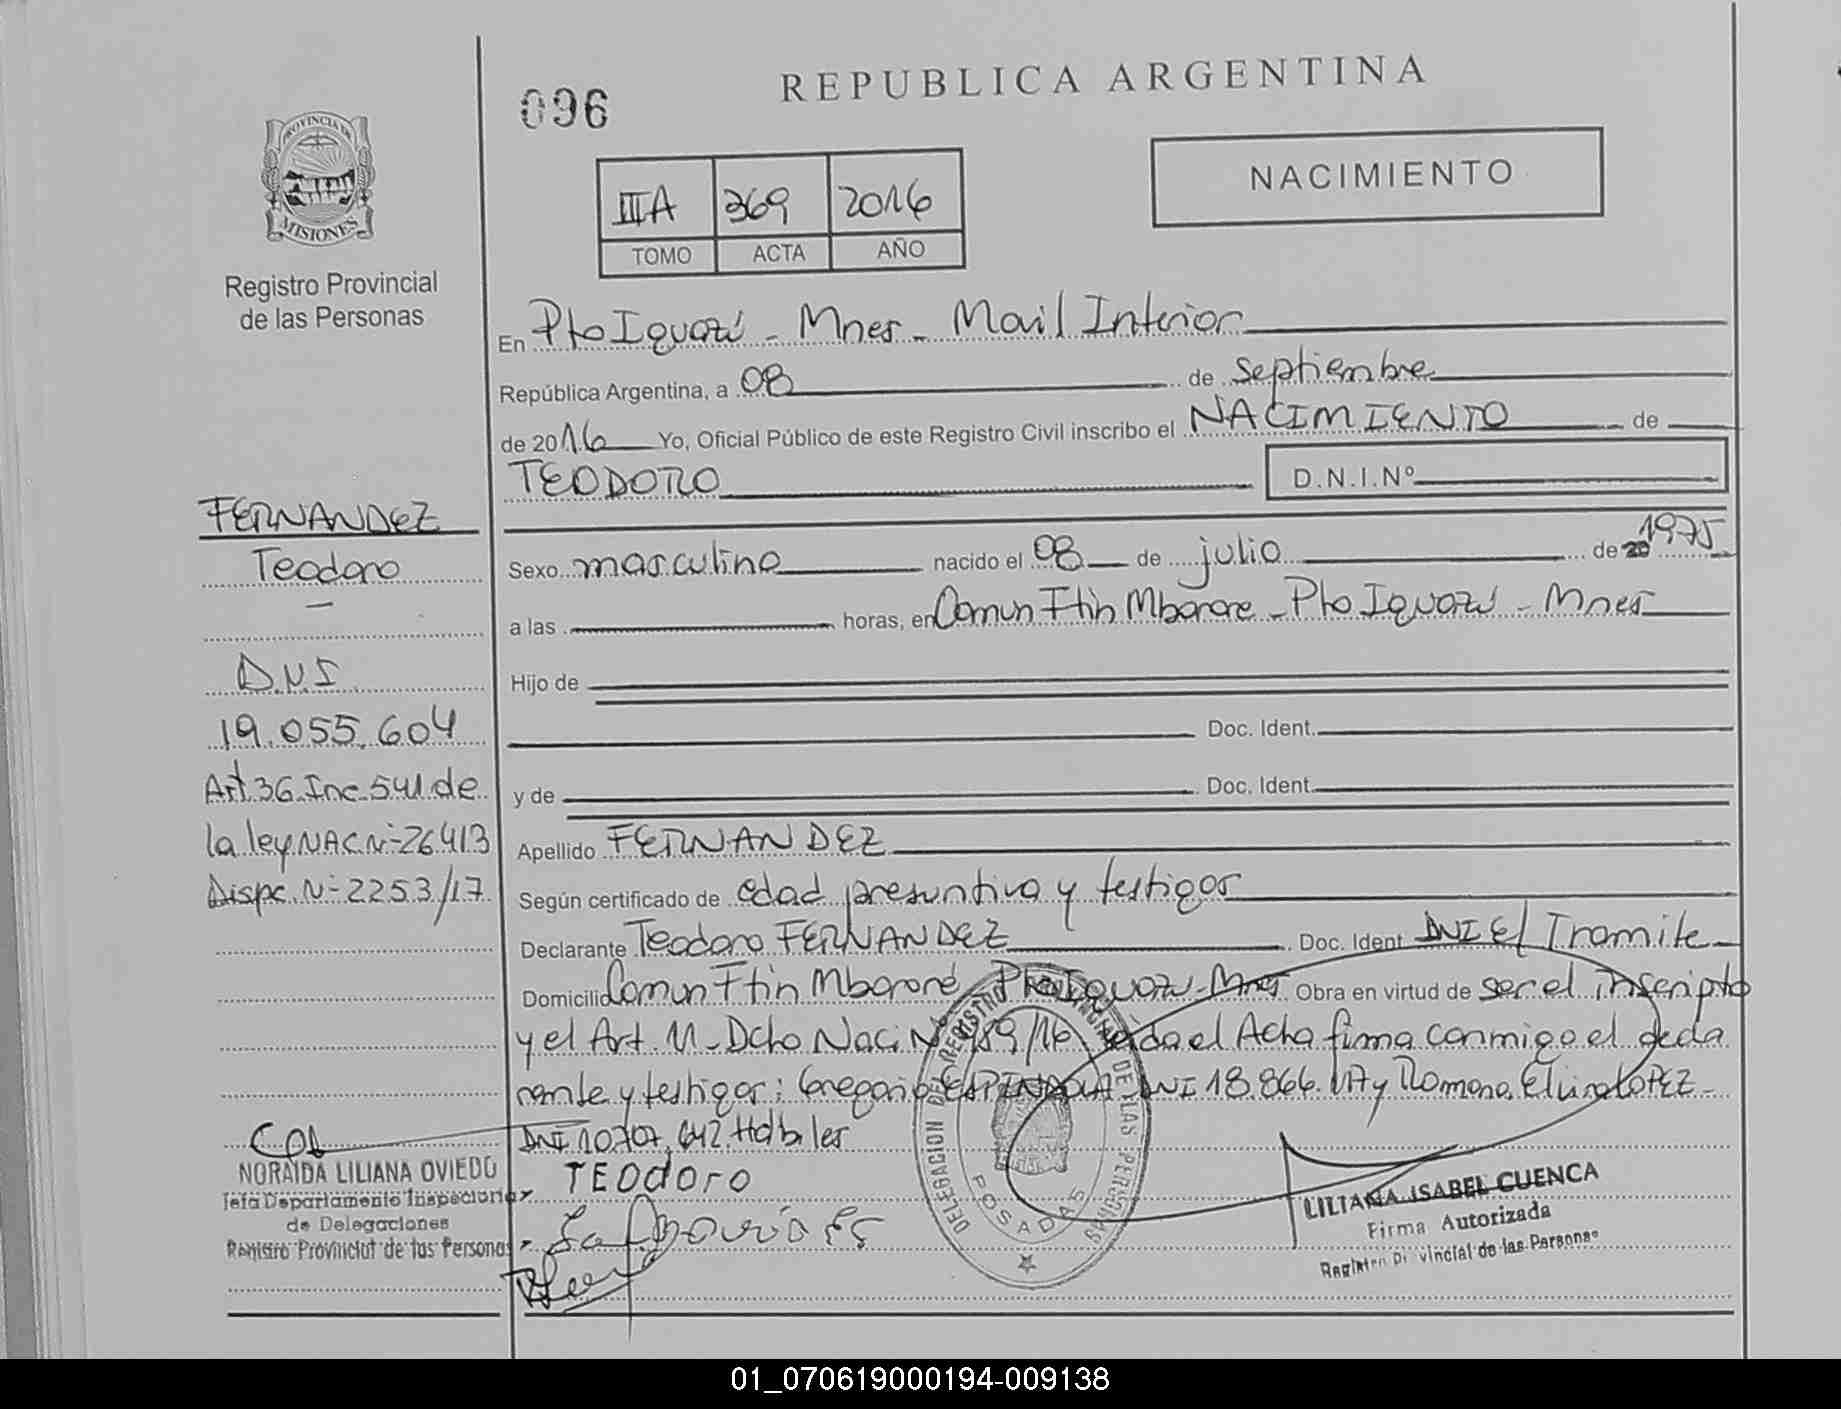 096
REPUBLICA ARGENTINA
NACIMIENTO
IIIA 369 2016
TOMO ACTA AÑO
PROVINCIA DE
MISIONES
Registro Provincial
de las Personas
En Pto Iguazú - Mnes - Movil Interior
República Argentina, a 08 de septiembre
de 2016 Yo, Oficial Público de este Registro Civil inscribo el NACIMIENTO de
TEODORO D.N.I.Nº
Sexo masculino nacido el 08 de julio de 20 1975
a las horas, en Comun Ftin Mborore - Pto Iguazú - Mnes
Hijo de
Doc. Ident.
y de Doc. Ident.
Apellido FERNANDEZ
Según certificado de edad presuntiva y testigos
Declarante Teodoro FERNANDEZ Doc. Ident DNI E/ Tramite
Domicilio Comun Ftin Mbororé Pto Iguazu - Mnes Obra en virtud de ser el inscripto
y el Art. 11 - Dcto Naci N 459/16 Leida el Acta firma conmigo el decla
rante y testigos: Gregorio ESPINDOLA DNI 18.866. y Romona Elvira LOPEZ -
DNI 10.707.642 Habiles
TEOdoro
FERNANDEZ
Teodoro
D.N.I
19.055.604
Art 36 Inc 541 de
la ley NAC Nº 26413
Dispc. Nº 2253/17
NORAIDA LILIANA OVIEDO
Jefa Departamento Inspectoria
de Delegaciones
Registro Provincial de las Personas
DELEGACION DEL REGISTRO PROVINCIAL DE LAS PERSONAS
POSADAS
LILIANA ISABEL CUENCA
Firma Autorizada
Registro Provincial de las Personas
01_070619000194-009138